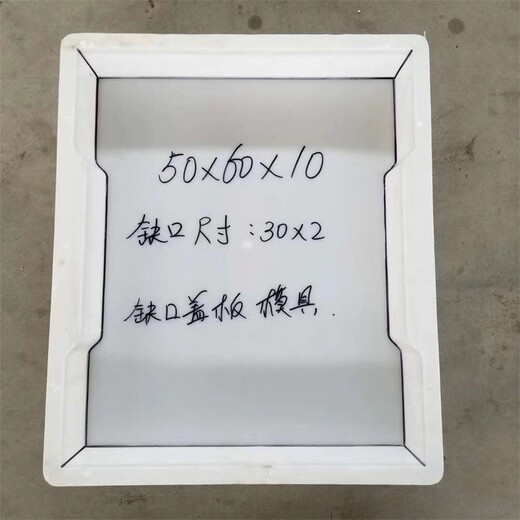 50x60x10
缺口尺寸:30x2
缺口盖板模具.